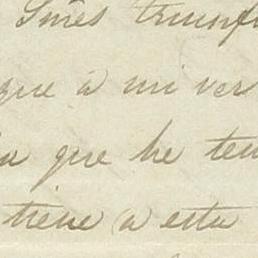 Sres triunf
que á mi ver
que he ten
tiene á esta